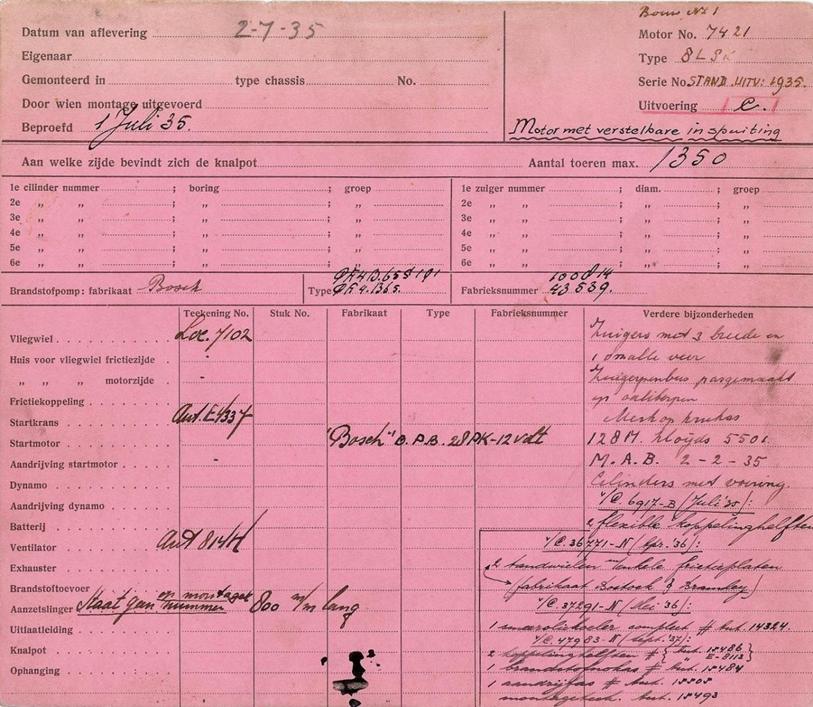 Bouw No 1
Datum van aflevering 2-7-35
Motor No. 7421
Eigenaar
Type 8LSK
Gemonteerd in type chassis No.
Serie No. STAND. UITV: 1935.
Door wien montage uitgevoerd
Uitvoering C.
Beproefd 1 Juli 35.
Motor met verstelbare inspuiting
Aan welke zijde bevindt zich de knalpot
Aantal toeren max. 1350
1e cilinder nummer ; boring ; groep
1e zuiger nummer ; diam. ; groep
2e „ „ ; „ ; „
2e „ „ ; „ ; „
3e „ „ ; „ ; „
3e „ „ ; „ ; „
4e „ „ ; „ ; „
4e „ „ ; „ ; „
5e „ „ ; „ ; „
5e „ „ ; „ ; „
6e „ „ ; „ ; „
6e „ „ ; „ ; „
Brandstofpomp: fabrikaat Bosch
Type
Fabrieksnummer 43539.
Teekening No. Stuk No. Fabrikaat Type Fabrieksnummer Verdere bijzonderheden
Zuigers met 3 breede en
Vliegwiel Loc. 7102
1 smalle veer
Huis voor vliegwiel frictiezijde -
Zuigerpenbus pasgemaakt
„ „ „ motorzijde -
op
Frictiekoppeling
Merk op krukas
Startkrans Aut. E4337
128M. Lloyds 5501
Startmotor "Bosch" B.P.B. 28PK-12 volt
M.A.B. 2-2-35
Aandrijving startmotor -
Cilinders met voering.
Dynamo
V/C. 6917-B (Juli '35):
Aandrijving dynamo
2 flexibele koppelinghelften
Batterij
V/C. 36771-N (Apr. '36):
Ventilator Aut 814H
2 tandwielen enkele frictieplaten
Exhauster
(fabrikaat Bostock & Bramley)
Brandstoftoevoer
V/C. 37291-N (Mei '36):
Aanzetslinger Staat geen nummer op montagek 800 m/m lang
1 compleet # but. 14324.
Uitlaatleiding
V/C. 47983-N (Sept. '37):
Knalpot
2 koppelinghelften # { but. 18486 E-8113 }
1 # but. 18484
Ophanging
1 aandrijfas # but.
but. 18493